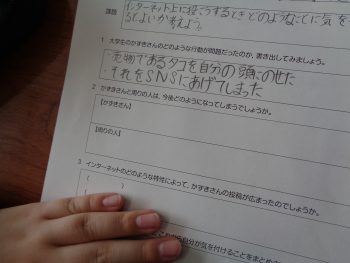 課題
インターネット上に投こうするときどのようなことに気を
るとよいか考えよう。
1 大学生のかずきさんのどのような行動が問題だったのか、書き出してみましょう。
・売物であるタコを自分の頭にのせた
・それをSNSにあげてしまった
2 かずきさんと周りの人は、今後どのようになってしまうでしょうか。
【かずきさん】
【周りの人】
3 インターネットのどのような特性によって、かずきさんの投稿が広まったのでしょうか。
( )
(
自分が気を付けることをまとめ